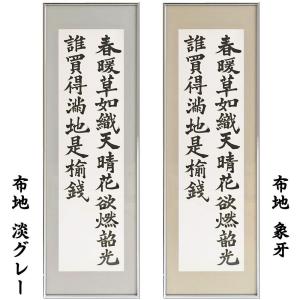 春暖草如織天晴花欲燃韶光
誰買得滿地是楡錢
布地 象牙
春暖草如織天晴花欲燃韶光
誰買得滿地是楡錢
布地 淡グレー